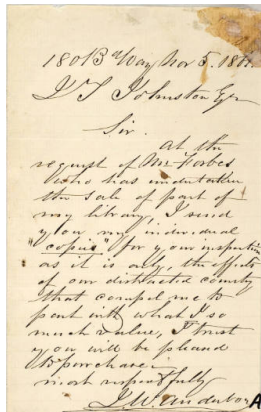 1801 B'way Nov 5. 1861.
J T Johnston Esqr
Sir.
At the
request of Mr Forbes
who has undertaken
the sale of part of
my library, I send
you my individual
"copies" for your inspection
as it is only, the effects
of our distracted country
that compel me to
part with what I so
much value, I trust
you will be pleased
to purchase.
most respectfully
J W Audubon
A